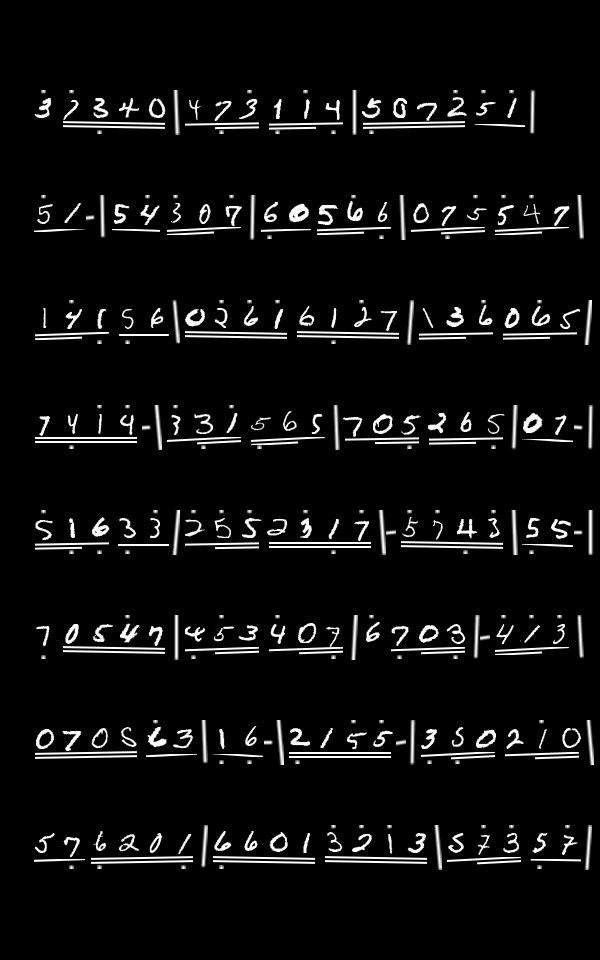 3 2 3 4 0 | 4 7 3 1 1 4 | 5 0 7 2 5 1 |
5 1 - | 5 4 3 0 7 | 6 0 5 6 6 | 0 7 5 5 4 7 |
1 4 1 5 6 | 0 2 6 1 6 1 2 7 | 1 3 6 0 6 5 |
7 4 1 4 - | 3 3 1 5 6 5 | 7 0 5 2 6 5 | 0 7 - |
5 1 6 3 3 | 2 5 5 2 3 1 7 | - 5 7 4 3 | 5 5 - |
7 0 5 4 7 | 4 5 3 4 0 7 | 6 7 0 3 | - 4 1 3 |
0 7 0 5 6 3 | 1 6 - | 2 1 5 5 - | 3 5 0 2 1 0 |
5 7 6 2 0 1 | 6 6 0 1 3 2 1 3 | 5 7 3 5 7 |